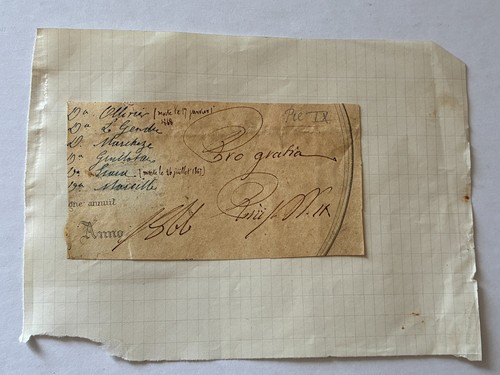 Dª Ollivier (morte le 17 janvier
1868
Dª Le Gendre
D. Marchize
Dª Guillotau
Dª (morte le 26 juillet 1867)
Dª Marseille
que: annuit
Anno 1866
Pie IX
Pro gratia
Pius P.P. IX